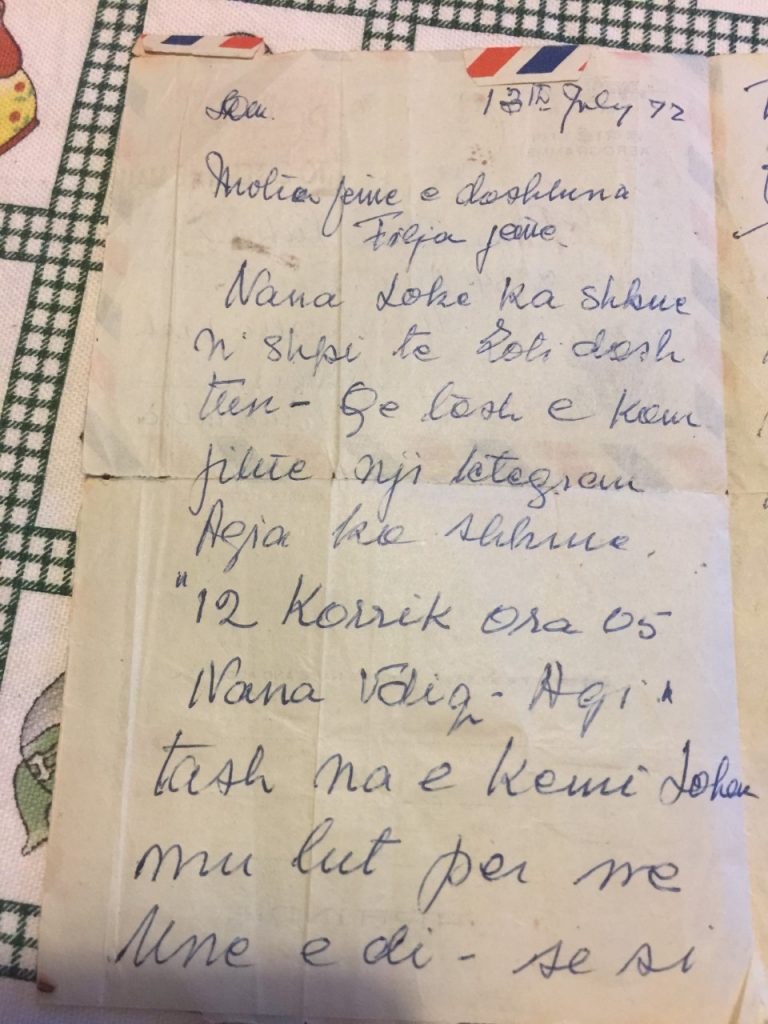 13th July 72
Motia jeme e dashtuna
Filja jeme.
Nana Loke ka shkue
n' shpi te Zoti dash
tun - Qe tash e kam
fillue nji letegram
Agia ka shkrue.
"12 Korrik ora 05
Nana Vdiq - Agi"
tash na e kemi Loken
mu lut per ne
Une e di - se si